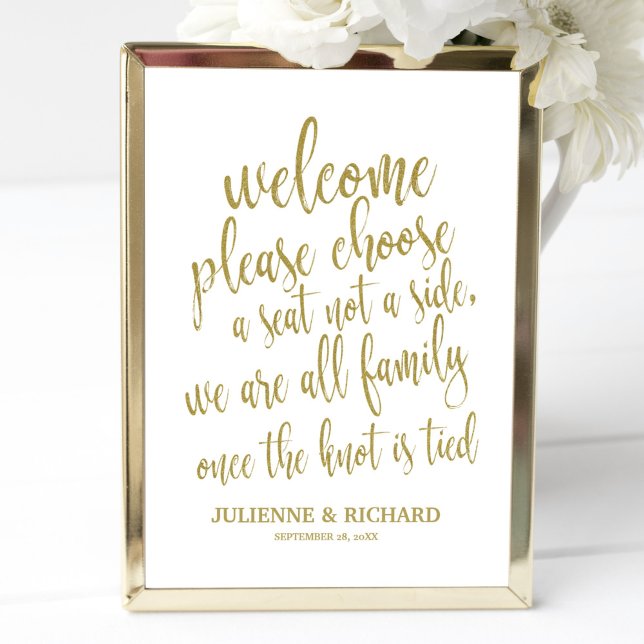 welcome
please choose
a seat not a side,
we are all family
once the knot is tied
JULIENNE & RICHARD
SEPTEMBER 28, 20XX